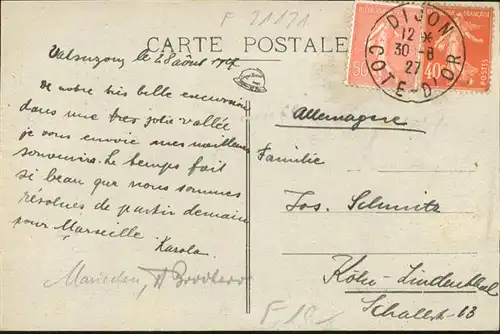 F 21171
CARTE POSTALE
Valsuzon, le 28 août 1927
De notre très belle excursion
dans une très jolie vallée
je vous envoie mes meilleurs
souvenirs. Le temps fait
si beau que nous sommes
résolues de partir demain
pour Marseille
Karola
DIJON
12 *
30 - 8
27
COTE D'OR
50
40
POSTES
Allemagne
Familie
Jos. Schmitz
Köln-Lindenthal
Schallstr 13